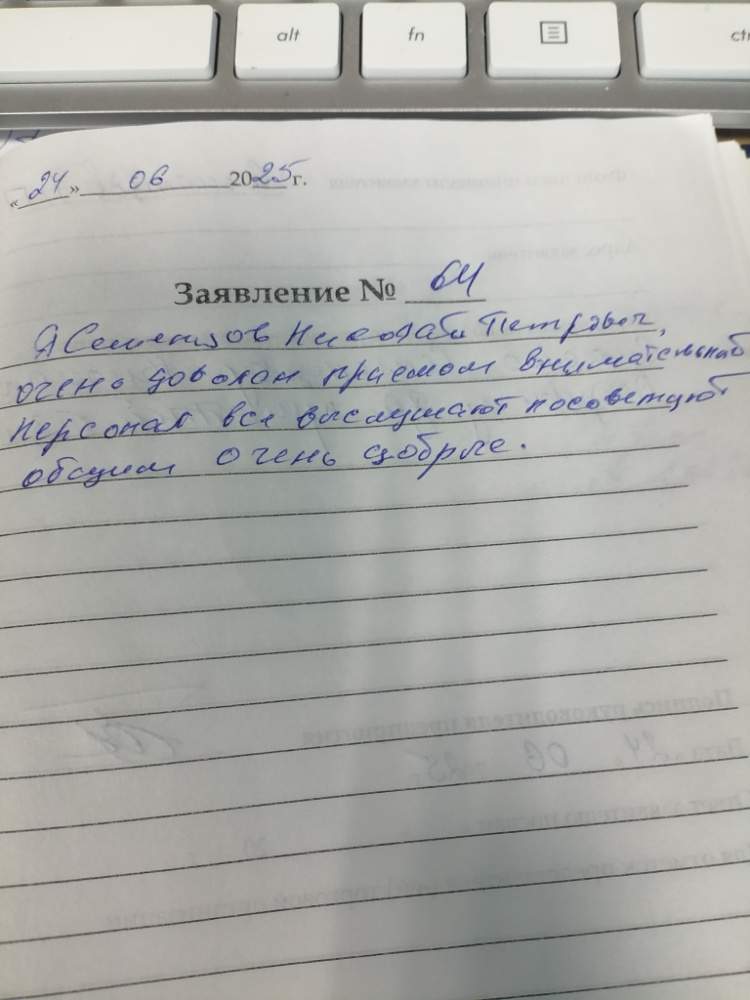 alt fn ctr
«24» 06 2025 г.
Заявление № 64
Я Семенцов Николай Петрович,
очень доволен приемом внимательный
персонал все выслушают посоветуют
общим очень добрые.